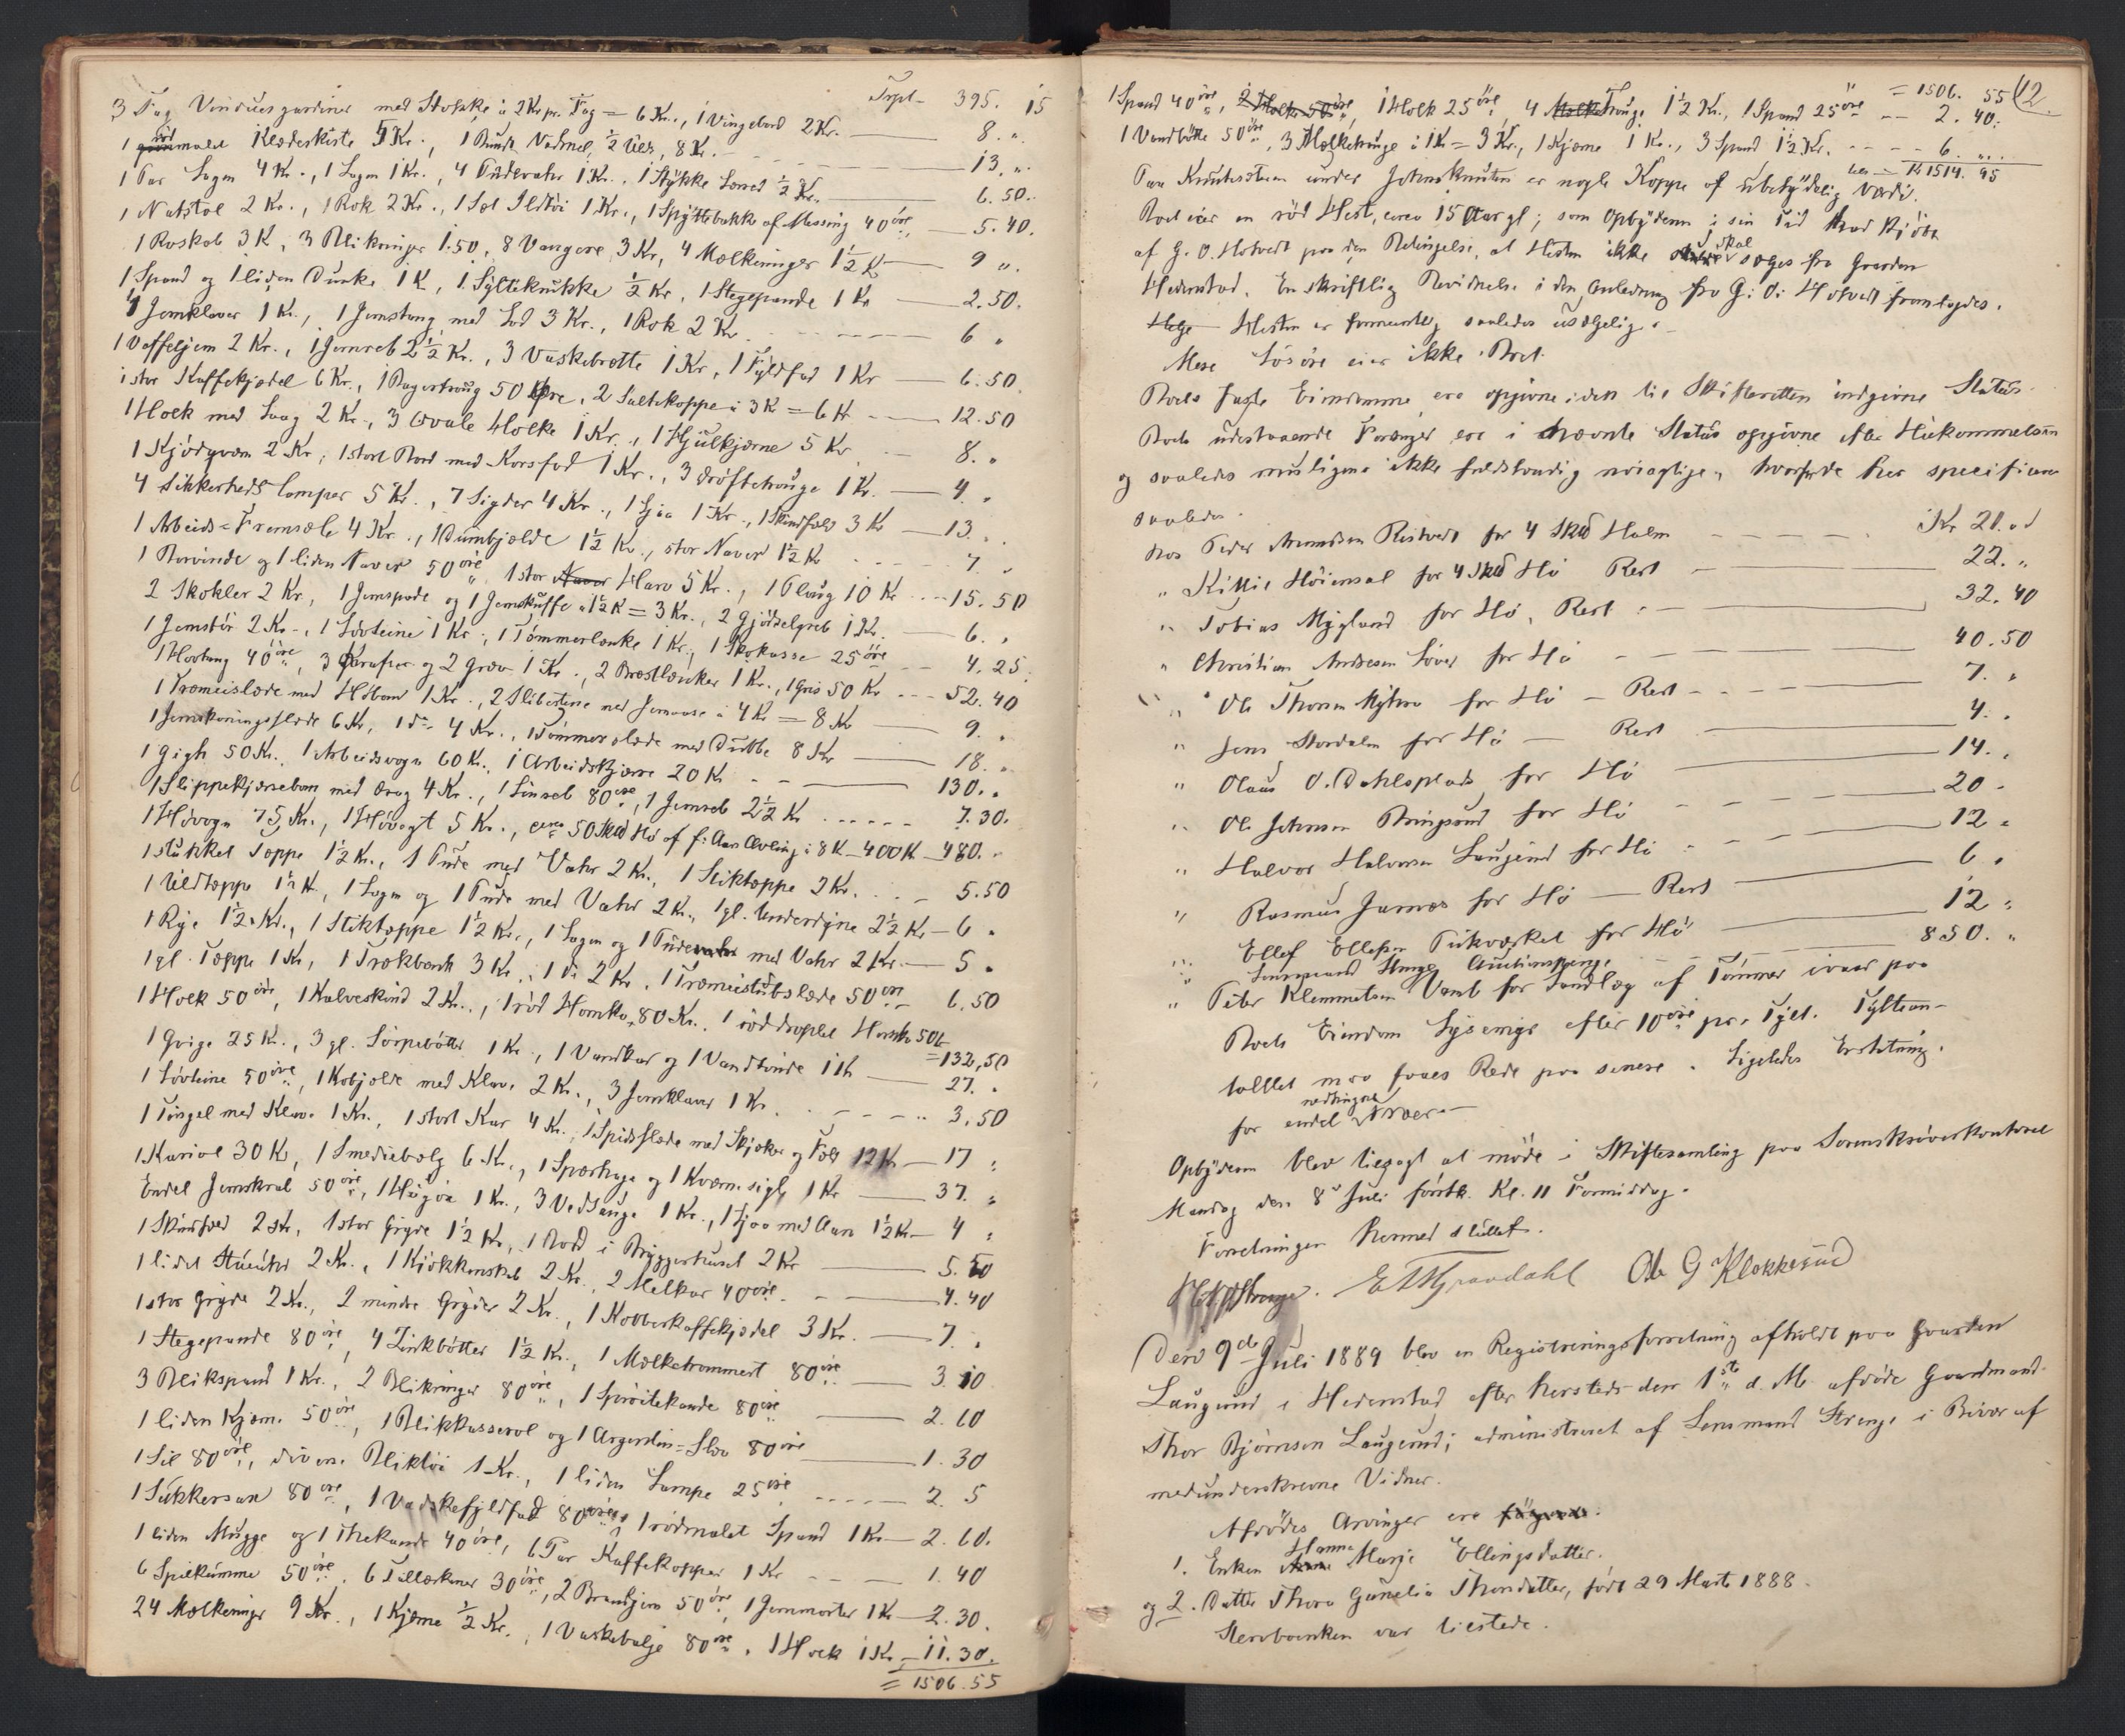 Trpt. 395. 15
3 Fag Vinduesgardiner med Stokke à 2 Kr pr. Fag = 6 Kr., 1 Vingebord 2 Kr. — 8. "
1 rød malet Klædeskiste 5 Kr., 1 Bundt Vadmel, ½ Uld, 8 Kr. — 13. "
1 Par Lagen 4 Kr., 1 Lagen 1 Kr., 4 Pudevahr 1 Kr., 1 Stykke Lærred ½ Kr. — 6.50.
1 Natstol 2 Kr., 1 Rok 2 Kr., 1 Sæt Ildtøi 1 Kr., 1 Spyttebakke af Messing 40 øre — 5.40.
1 Roskab 3 K, 3 Blikringer 1.50, 8 Vangere 3 Kr, 4 Mælkeringer 1½ K — 9 ".
1 Spand og 1 liden Dunke 1 K, 1 Sylteknukke ½ Kr, 1 Stegepande 1 Kr — 2.50.
4 Jernklaver 1 Kr., 1 Jernstang med Lod 3 Kr., 1 Rok 2 Kr — 6 "
1 Vaffeljern 2 Kr., 1 Jernreb 2½ Kr., 3 Vaskebrætte 1 Kr, 1 Fyldfad 1 Kr — 6.50.
1 stor Kaffekjedel 6 Kr., 1 Bagertroug 50 Øre, 2 Saltekoppe à 3 K = 6 Kr — 12.50
1 Holk med Laag 2 Kr., 3 Ovale Holke 1 Kr., 1 Hjulkjærne 5 Kr — 8. "
1 Kjødqværn 2 Kr, 1 stort Bord med Korsfod 1 Kr., 3 drøftetrouge 1 Kr. — 4. "
4 Sikkerhedslamper 5 Kr., 7 Sigder 4 Kr., 1 Ljaa 1 Kr., 1 Skindfæld 3 Kr — 13. "
1 Arbeids=Fremsæle 4 Kr., 1 Dumbjælde 1½ Kr., stor Naver 1½ Kr — 7 "
1 Borvinde og 1 liden Naver 50 øre, 1 stor Harv 5 Kr., 1 Ploug 10 Kr — 15.50
2 Skokler 2 Kr, 1 Jernspade og 1 Jernskuffe à 1½ K = 3 Kr., 2 Gjødselgreb 1 Kr. — 6. "
1 Jernstør 2 Kr., 1 Løvteine 1 Kr., 1 Tømmerlænke 1 Kr., 1 Skokasse 25 øre — 4.25.
1 Hortang 40 øre, 3 Skraper og 2 Græv 1 Kr., 2 Brøstlænker 1 Kr., 1 Gris 50 Kr — 52.40
1 Træmeislæde med Høbom 1 Kr., 2 Slibestene med Jernaase à 4 Kr = 8 Kr — 9. "
1 Jernskoningsslæde 6 Kr, 1 do 4 Kr., 1 Tømmerslæde med Dubbe 8 Kr — 18. "
1 Gigh 50 Kr., 1 Arbeidsvogn 60 Kr., 1 Arbeidskjærre 20 K — 130. "
1 Slippekjærrebom med drag 4 Kr., 1 Linreb 80 øre, 1 Jernreb 2½ Kr — 7.30.
1 Høvogn 75 Kr., 1 Høvægt 5 Kr., circa 50 Skpd Hø af f: Aars Avling à 8 K — 400 K — 480. "
1 stukket Tæppe 1½ Kr., 1 Pude med Vahr 2 Kr., 1 Stiktæppe 2 Kr. — 5.50
1 Uldtæppe 1½ K., 1 Lagen og 1 Pude med Vahr 2 Kr., 1 gl. Underdyne 2½ Kr — 6 "
1 Rye 1½ Kr., 1 Stiktæppe 1½ Kr., 1 Lagen og 1 Pude med Vahr 2 Kr. — 5 "
1 gl. Tæppe 1 Kr, 1 Trækbænk 3 Kr., 1 do 2 Kr., 1 Træmeistutslæde 50 øre — 6.50
1 Holk 50 øre, 1 Kalveskind 2 Kr., 1 rød Hornko 80 Kr., 1 röddroplet Hornko 50 K = 132,50
1 Qvige 25 K., 3 gl. Sørpebøtter 1 Kr., 1 Vandkar og 1 Vandtønde 1 K — 27. "
1 Løvteine 50 øre, 1 Kobjælde med Klave 2 Kr., 3 Jernklaver 1 Kr. — 3.50
1 Tingel med Klave 1 Kr., 1 stort Kar 4 Kr., 1 Spidsslæde med Skjæker og Fæld 12 K — 17 "
1 Kariol 30 K, 1 Smediebælg 6 Kr., 1 Sparhage og 1 Kværnsigte 1 Kr — 37. "
Endel Jernskrab 50 øre, 1 Hugøx 1 Kr., 3 Vedsauge 1 Kr., 1 Ljaa med Aan 1½ Kr — 4 "
1 Skindfæld 2 Kr, 1 stor Gryde 1½ Kr, 1 Bord i Bryggerhuset 2 Kr — 5.50
1 lidet Stueuhr 2 Kr., 1 Kjøkkenskab 2 Kr., 2 Melkar 40 øre — 4.40
1 stor Gryde 2 Kr., 2 mindre Gryder 2 Kr., 1 Kobberkaffekjedel 3 Kr. — 7. "
1 Stegepande 80 øre, 4 Zinkbøtter 1½ Kr., 1 Mælketrommert 80 øre — 3.10
3 Blikspand 1 Kr., 2 Blikringer 80 øre, 1 Sprøitekande 80 øre — 2.60
1 liden Kjerne 50 øre, 1 Blikkasserol og 1 Argentin=Skee 80 øre — 1.30
1 Sil 80 øre, diverse Bliktøi 1 Kr., 1 liden Lampe 25 øre — 2.5
1 Sukkersax 80 øre, 1 Vaskefyldfad 80 øre, 1 rødmalet Spand 1 Kr — 2.60.
1 liden Mugge og 1 Thekande 40 øre, 6 Par Kaffekopper 1 Kr — 1.40
6 Spilkumme 50 øre, 6 Tallerkner 30 øre, 2 Brændjern 50 øre, 1 Jernmorter 1 K — 2.30.
24 Mælkeringe 9 Kr., 1 Kjerne ½ Kr., 1 Vaskebalje 80 øre, 1 Holk 1 Kr — 11.30.
= 1506.55
12.
= 1506. 55
1 Spand 40 øre, 2 Holke 50 øre, 1 Holk 25 øre, 4 Trouge 1½ Kr., 1 Spand 25 øre — 2.40.
1 Vandbøtte 50 øre, 3 Mælketrouge à 1 K = 3 Kr., 1 Kjerne 1 Kr., 3 Spand 1½ Kr. — 6. "
= Kr 1514. 95
Paa Knutesetren under Johnsknuten er nogle Koppe af ubetydelig Værdi.
Boet eier en rød Hest, circa 15 Aar gl; som Opbyderen i sin Tid har Kjøbt
af G. O. Hotvedt paa den Betingelse, at Hesten ikke skal sælges fra Gaarden
Hedenstad. En skriftlig Bevidnelse i den Anledning fra G: O: Hotvedt fremlagdes.
Hesten er formentlig saaledes usælgelig.
Mere Løsøre eier ikke Boet.
Boets faste Eiendomme ere opgivne i den til Skifteretten indgivne Status.
Boets udestaaende Fordringer ere i nævnte Status opgivne efter Hukommelsen
og saaledes muligens ikke fuldstændig nøiagtige, hvorfor de her specificeres
saaledes.
Hos Peder Amundsen Ristvedt for 4 Skpd Halm — Kr 20. "
" Kittil Høiensal for 4 Skpd Hø Rest — 22. "
" Tobias Mygland for Hø, Rest — 32.40
" Christian Andresen Løver for Hø — 40.50
" Ole Thorsen Myhra for Hø — Rest — 7. "
" Jens Stordalen for Hø — Rest — 4. "
" Olaus O. Dahlsplads for Hø — 14. "
" Ole Johnsen Bringsrud for Hø — 20 "
" Halvor Halvorsen Laugerud for Hø — 12 "
" Rasmus Jarnæs for Hø — Rest — 6 "
" Ellef Ellefsen Pukværket for Hø — 12 "
" Lensmand Strenge Auctionspenge — 850. "
" Peter Klemmetsen Vamb for Landlæg af Tømmer ivaar paa
Boets Eiendom Lysenge efter 10 øre pr. Tylt. Tyltean-
tallet maa faaes Rede paa senere. Ligeledes Erstatning
for endel nedhugne Træer. —
Opbyderen blev tilsagt at møde i Skiftesamling paa Sorenskriverkontoret
Mandag den 8de Juli førstk. Kl. 11 Formiddag.
Forretningen hermed sluttet.
Strenge. E T Gravdahl Ole G Klokkerud
Den 9de Juli 1889 blev en Registreringsforretning afholdt paa Gaarden
Laugerud i Hedenstad efter hersteds den 1ste d. M. afdøde Gaardmand
Thor Bjørnsen Laugerud; administreret af Lensmand Strenge i Bivær af
medunderskrevne Vidner.
Afdødes Arvinger ere følgende.
1. Enken Hanne Marje Ellingsdatter.
og 2. Datter Thora Gunelia Thorsdatter, født 29 Marts 1888.
Stervboenken var tilstede.